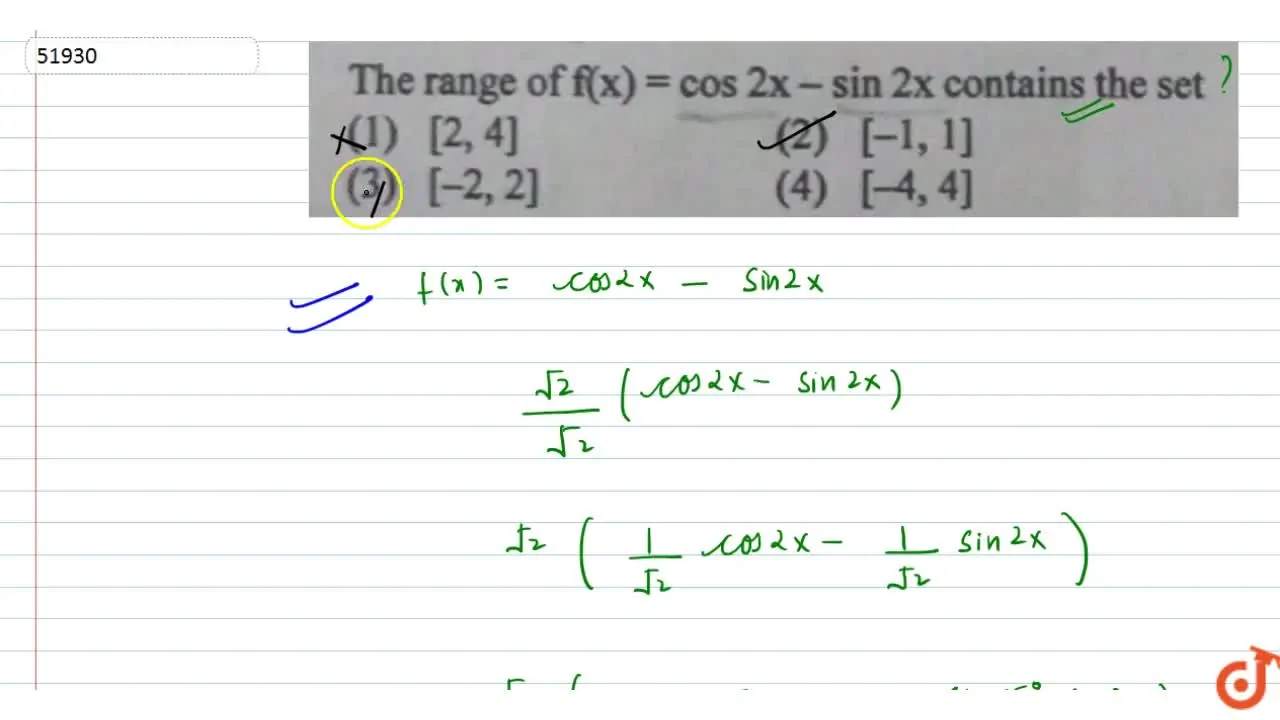 51930
The range of f(x) = cos 2x – sin 2x contains the set ?
(1) [2, 4] (2) [–1, 1]
(3) [–2, 2] (4) [–4, 4]
f(x) = cos2x – sin2x
√2/√2 (cos2x – sin2x)
√2 ( 1/√2 cos2x – 1/√2 sin2x )